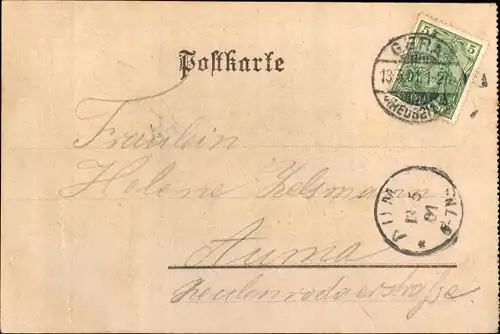 5 5
GERA
13.5.01.1-2N.
(REUSS)
Postkarte
Fräulein
Helene
Auma
Zeulenrodaerstraße
AUMA
13 5
01